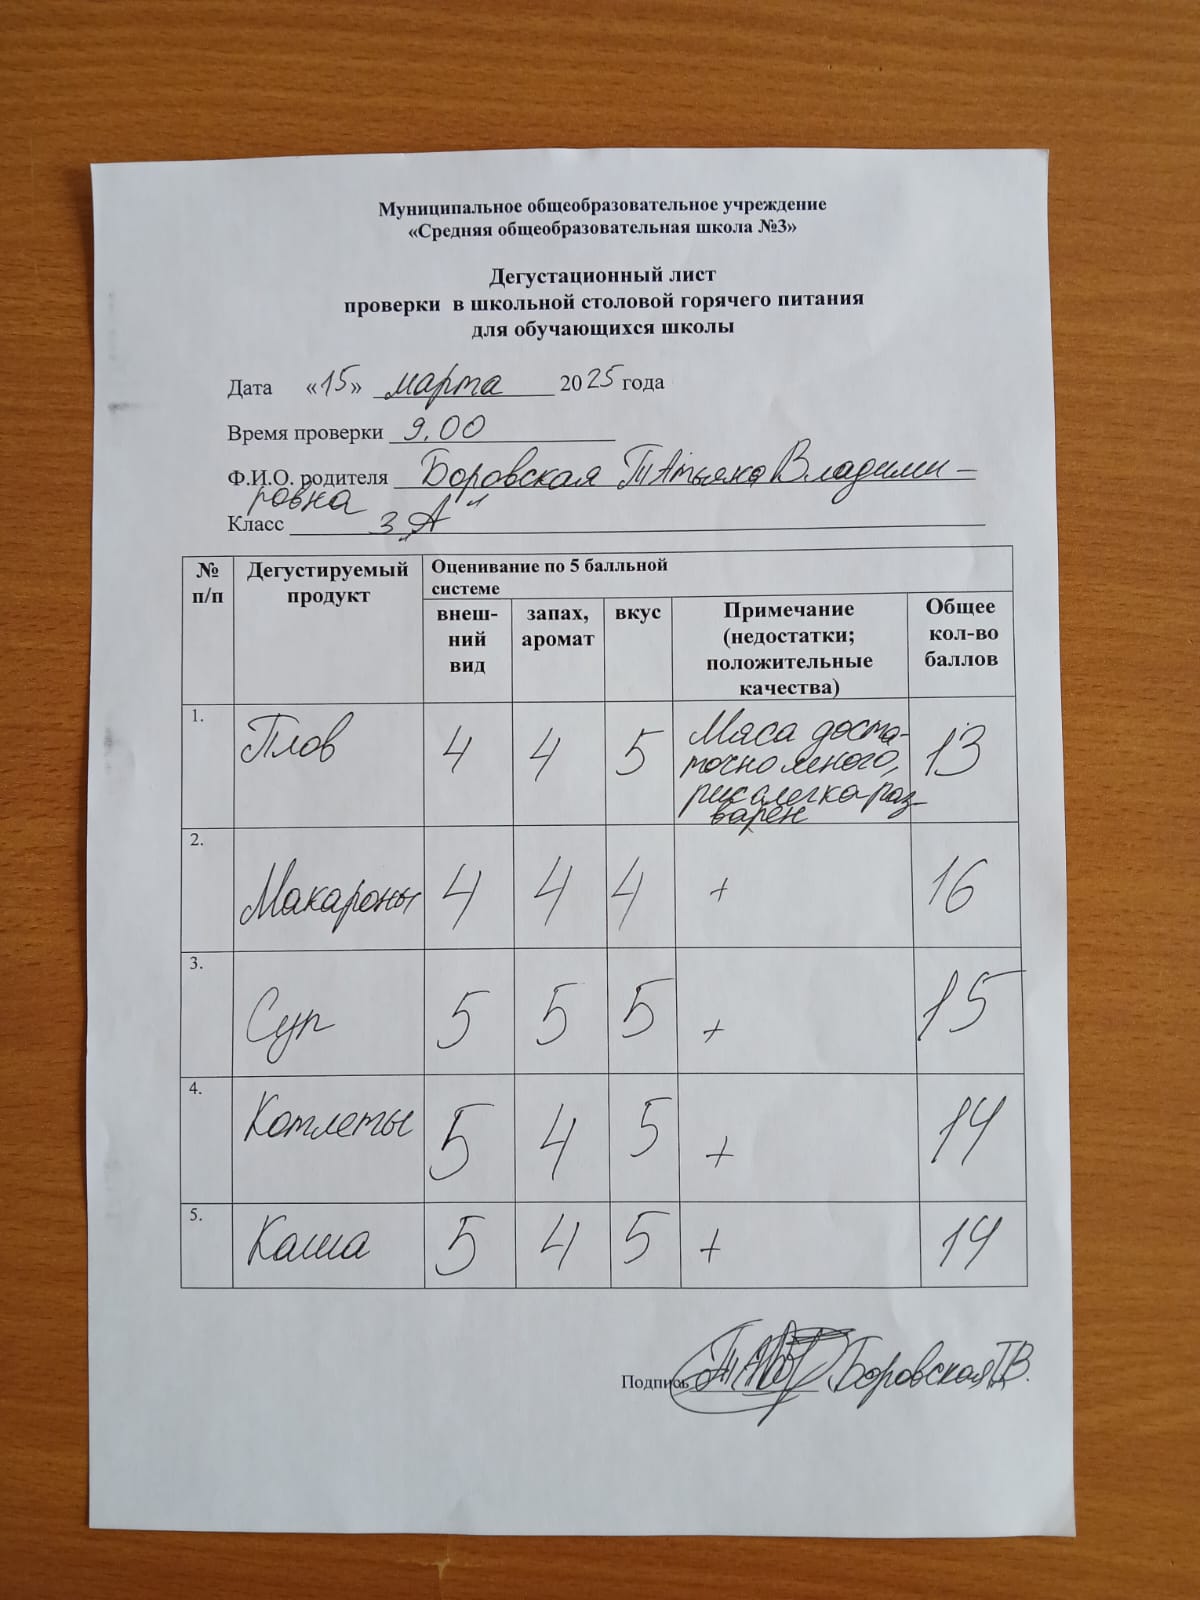 Муниципальное общеобразовательное учреждение
«Средняя общеобразовательная школа №3»
Дегустационный лист
проверки в школьной столовой горячего питания
для обучающихся школы
Дата «15» марта 2025 года
Время проверки 9.00
Ф.И.О. родителя Боровская Татьяна Владими-
ровна
Класс 3 „А"
№ п/п
Дегустируемый продукт
Оценивание по 5 балльной
системе
внеш-
ний
вид
запах,
аромат
вкус
Примечание
(недостатки;
положительные
качества)
Общее
кол-во
баллов
1. Плов 4 4 5 Мяса доста-
точно много,
рис слегка раз-
варен
13
2. Макароны 4 4 4 + 16
3. Суп 5 5 5 + 15
4. Котлеты 5 4 5 + 14
5. Каша 5 4 5 + 14
Подпись Боровская Т.В.